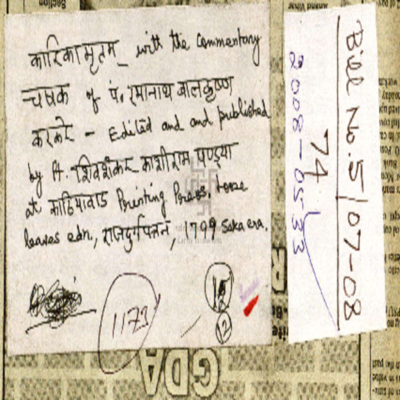 कारिकामृतम् with the commentary
चषक of पं. रमानाथ बालकृष्ण
करकरे - Edited and and published
by Pt. शिवशंकर काशीराम पण्ड्या
at काठियावाड Printing Press, loose
leaves edn, राजदुर्गपत्तन, 1799 Saka era.
1173
15
2
Bill No. 5/07-08
74
2008-0533
GDA